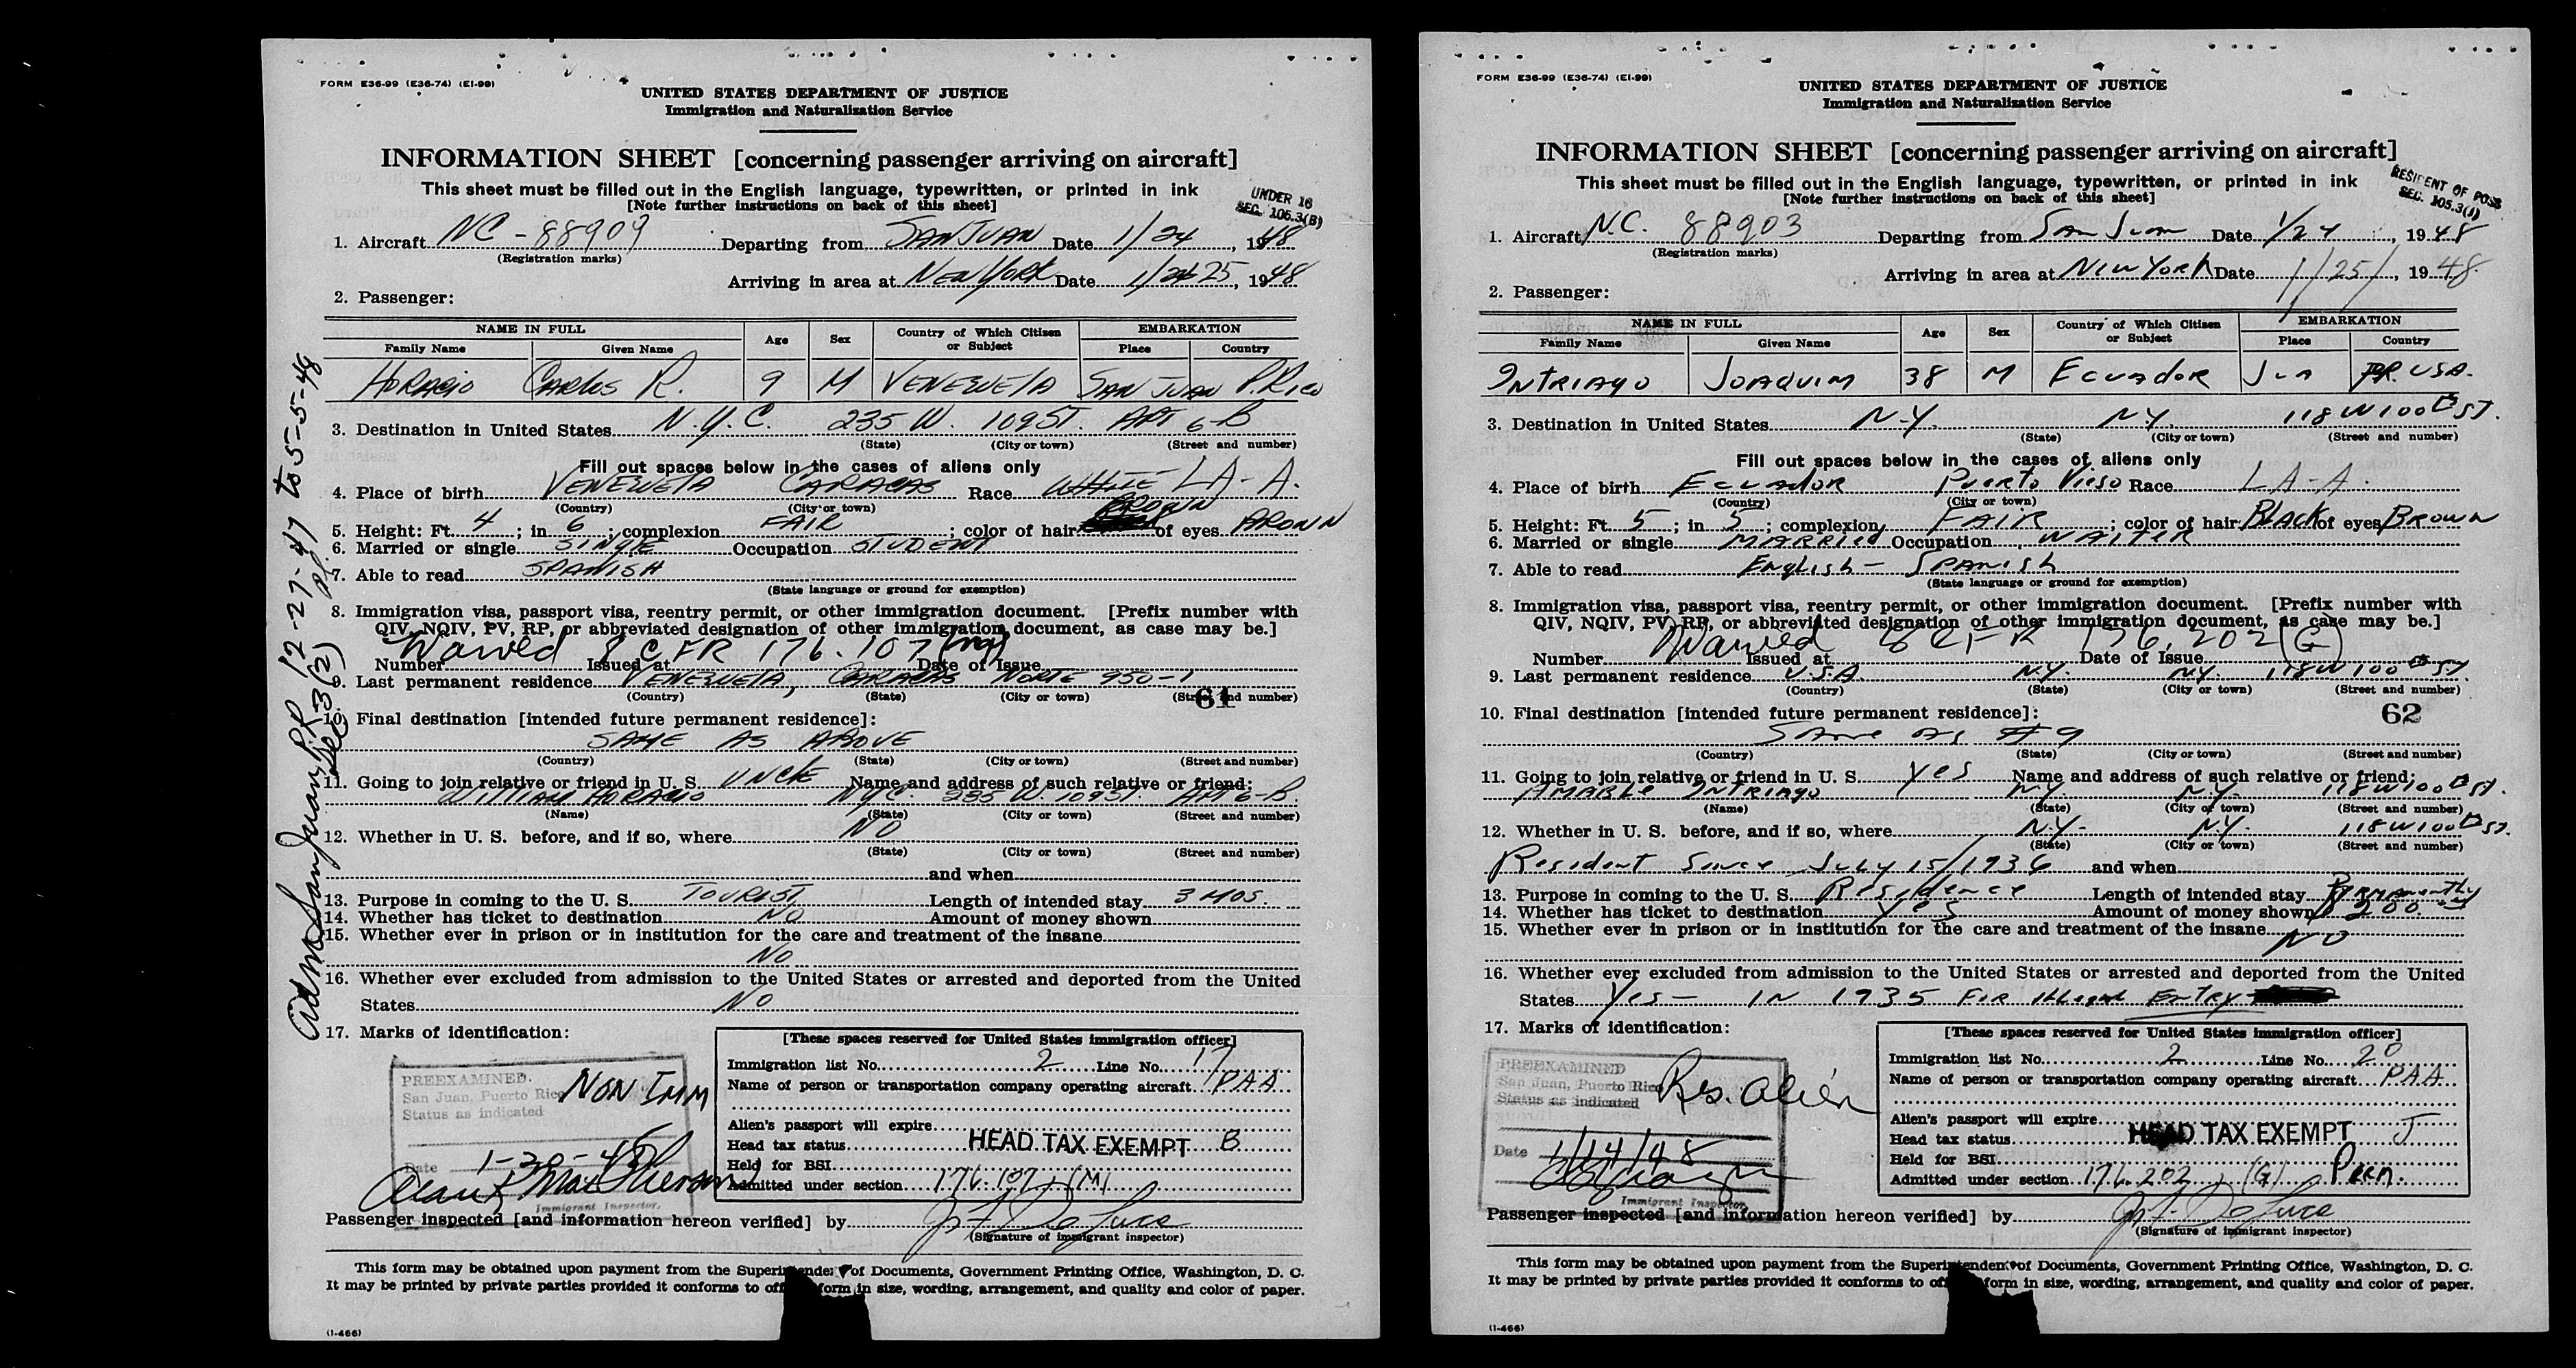 FORM E36-99 (E36-74) (E1-99)
UNITED STATES DEPARTMENT OF JUSTICE
Immigration and Naturalization Service
INFORMATION SHEET [concerning passenger arriving on aircraft]
This sheet must be filled out in the English language, typewritten, or printed in ink
[Note further instructions on back of this sheet]
UNDER 16
SEC. 105.3(B)
1. Aircraft NC-88909 Departing from SAN JUAN Date 1/24, 1948
(Registration marks)
Arriving in area at NEW YORK Date 1/24 25, 1948
2. Passenger:
NAME IN FULL Age Sex Country of Which Citizen or Subject EMBARKATION
Family Name Given Name Place Country
HORACIO CARLOS R. 9 M VENEZUELA SAN JUAN P. RICO
3. Destination in United States N.Y.C. 235 W. 109 ST. APT 6-B
(State) (City or town) (Street and number)
Fill out spaces below in the cases of aliens only
4. Place of birth VENEZUELA CARACAS Race WHITE LA-A.
(Country) (City or town)
5. Height: Ft. 4; in 6; complexion FAIR; color of hair BROWN of eyes BROWN
6. Married or single SINGLE Occupation STUDENT
7. Able to read SPANISH
(State language or ground for exemption)
8. Immigration visa, passport visa, reentry permit, or other immigration document. [Prefix number with
QIV, NQIV, PV, RP, or abbreviated designation of other immigration document, as case may be.]
Waived 8 CFR 176.107 (m)
Number Issued at Date of Issue
9. Last permanent residence VENEZUELA, CARACAS NORTE 950-1
(Country) (State) (City or town) (Street and number)
61
10. Final destination [intended future permanent residence]:
SAME AS ABOVE
(Country) (State) (City or town) (Street and number)
11. Going to join relative or friend in U. S. UNCLE Name and address of such relative or friend:
WILLIAM HORACIO NYC. 235 W. 109 ST. APT 6-B.
(Name) (State) (City or town) (Street and number)
12. Whether in U. S. before, and if so, where NO
(State) (City or town) (Street and number)
and when
13. Purpose in coming to the U. S. TOURIST Length of intended stay 3 MOS.
14. Whether has ticket to destination NO Amount of money shown
15. Whether ever in prison or in institution for the care and treatment of the insane
NO
16. Whether ever excluded from admission to the United States or arrested and deported from the United
States NO
17. Marks of identification:
PREEXAMINED.
San Juan, Puerto Rico
Status as indicated
NON IMM
Date 1-20-48
Immigrant Inspector.
[These spaces reserved for United States immigration officer]
Immigration list No. 2 Line No. 17
Name of person or transportation company operating aircraft PAA
Alien's passport will expire
Head tax status HEAD TAX EXEMPT B
Held for BSI
Admitted under section 176.107 (M)
Passenger inspected [and information hereon verified] by
(Signature of immigrant inspector)
This form may be obtained upon payment from the Superintendent of Documents, Government Printing Office, Washington, D. C.
It may be printed by private parties provided it conforms to off form in size, wording, arrangement, and quality and color of paper.
(I-466)
San Juan P.R. 12-27-47 to 5-5-48
Sec 3(2)
FORM E36-99 (E36-74) (E1-99)
UNITED STATES DEPARTMENT OF JUSTICE
Immigration and Naturalization Service
INFORMATION SHEET [concerning passenger arriving on aircraft]
This sheet must be filled out in the English language, typewritten, or printed in ink
[Note further instructions on back of this sheet]
RESIDENT OF POSS
SEC. 105.3(J)
1. Aircraft N.C. 88903 Departing from San Juan Date 1/24, 1948
(Registration marks)
Arriving in area at New York Date 1/25/, 1948
2. Passenger:
NAME IN FULL Age Sex Country of Which Citizen or Subject EMBARKATION
Family Name Given Name Place Country
INTRIAGO JOAQUIM 38 M ECUADOR PR. USA.
3. Destination in United States N.Y. N.Y. 118 W 100 ST.
(State) (City or town) (Street and number)
Fill out spaces below in the cases of aliens only
4. Place of birth ECUADOR Puerto Vieso Race LA-A.
(Country) (City or town)
5. Height: Ft. 5; in 5; complexion FAIR; color of hair BLACK of eyes BROWN
6. Married or single MARRIED Occupation WAITER
7. Able to read English - SPANISH
(State language or ground for exemption)
8. Immigration visa, passport visa, reentry permit, or other immigration document. [Prefix number with
QIV, NQIV, PV, RP, or abbreviated designation of other immigration document, as case may be.]
Waived 8 CFR 176.202 (G)
Number Issued at Date of Issue
9. Last permanent residence U.S.A. N.Y. N.Y. 118 W 100 ST.
(Country) (State) (City or town) (Street and number)
62
10. Final destination [intended future permanent residence]:
Same as #9
(Country) (State) (City or town) (Street and number)
11. Going to join relative or friend in U. S. Yes Name and address of such relative or friend:
AMABLE INTRIAGO N.Y. N.Y. 118 W 100 ST.
(Name) (State) (City or town) (Street and number)
12. Whether in U. S. before, and if so, where N.Y. N.Y. 118 W 100 ST.
(State) (City or town) (Street and number)
Resident Since July 15/1936 and when
13. Purpose in coming to the U. S. Residence Length of intended stay
14. Whether has ticket to destination Yes Amount of money shown 200.
15. Whether ever in prison or in institution for the care and treatment of the insane
NO
16. Whether ever excluded from admission to the United States or arrested and deported from the United
States Yes - IN 1935 FOR illegal ENTRY
17. Marks of identification:
PREEXAMINED
San Juan, Puerto Rico
Status as indicated
Res. Alien
Date 1/14/48
Immigrant Inspector
[These spaces reserved for United States immigration officer]
Immigration list No. 2 Line No. 20
Name of person or transportation company operating aircraft PAA
Alien's passport will expire
Head tax status HEAD TAX EXEMPT J
Held for BSI
Admitted under section 176.202 (G)
Passenger inspected [and information hereon verified] by
(Signature of immigrant inspector)
This form may be obtained upon payment from the Superintendent of Documents, Government Printing Office, Washington, D. C.
It may be printed by private parties provided it conforms to off form in size, wording, arrangement, and quality and color of paper.
(I-466)